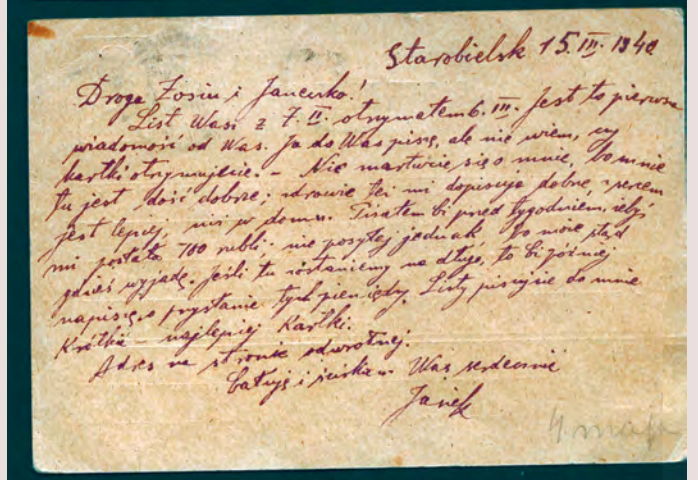 Starobielsk 15.III.1940
Droga Zosiu i Janeczko!
List Wasz z 7.II. otrzymałem 6.III. Jest to pierwsza
wiadomość od Was. Ja do Was piszę, ale nie wiem, czy
kartki otrzymujecie. – Nie martwcie się o mnie, bo mnie
tu jest dość dobrze; zdrowie też mi dopisuje dobrze, z sercem
jest lepiej, niż w domu. Pisałem Ci przed tygodniem, żebyś
mi posłała 700 rubli; nie posyłaj jednak, bo może stąd
gdzieś wyjadę. Jeśli tu zostaniemy na dłużej, to Ci później
napiszę o przysłanie tych pieniędzy. Listy piszcie do mnie
krótkie – najlepiej kartki.
Adres na stronie odwrotnej.
Całuję i ściskam Was serdecznie
Janek
4 maja